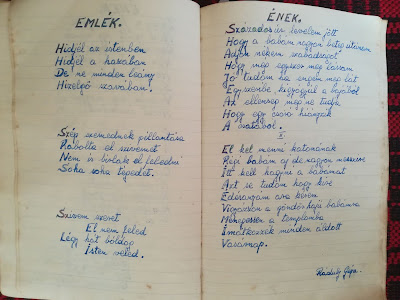 EMLÉK.
Hidjél az istenben
Hidjél a hazában
De ne minden leány
Hizelgő szavában.
Szép szemednek pillantása
Rabolta el szivemet
Nem is birlak el feledni
Soha soha tégedet.
Szivem szeret
El nem feled
Légy hát boldog
Isten veled.
ÉNEK.
Százados úr levelem jött
Hogy a babám nagyon beteg utánam
Adjon nékem szabadságot
Hogy még egyszer meg lássam
Jó tudom ha engem meg lát
Egyszeribe kigyógyul a bajából
Az ellenség még ne tudja
Hogy egy csásó hiányzik
A csatából.
El kel menni katonának
Régi babám az de nagyon messzire
Itt kell hagyni a babámat
Azt se tudom hogy kire
Édesanyám arra kérem
Vigyázzon a göndör hajú babámra
Menepessen a templomba
Imátkozzék minden áldott
Vasárnap.